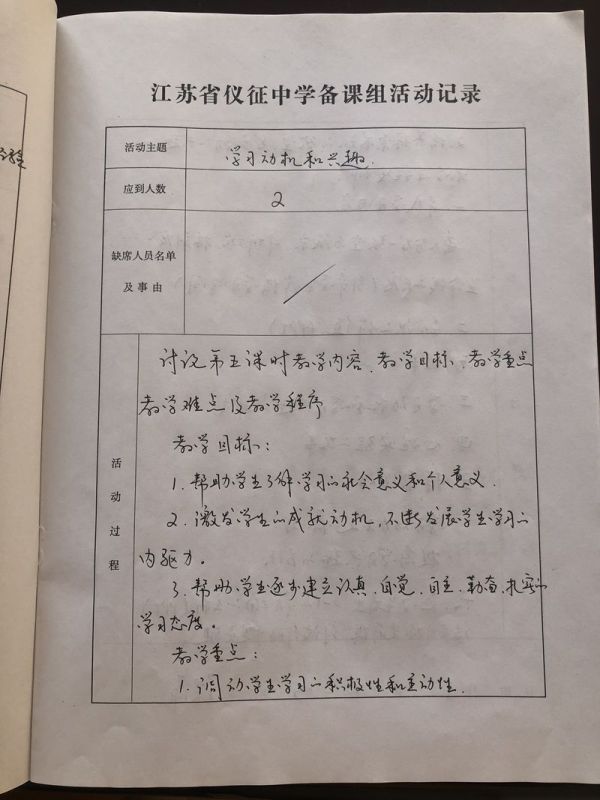 江苏省仪征中学备课组活动记录
活动主题
学习动机和兴趣.
应到人数
2
缺席人员名单
及事由
活动过程
讨论第五课时教学内容、教学目标、教学重点
教学难点及教学程序
教学目标：
1. 帮助学生了解学习的社会意义和个人意义.
2. 激发学生的成就动机,不断发展学生学习的
内驱力。
3. 帮助学生逐步建立认真、自觉、自主、勤奋、扎实的
学习态度。
教学重点：
1. 调动学生学习的积极性和主动性.